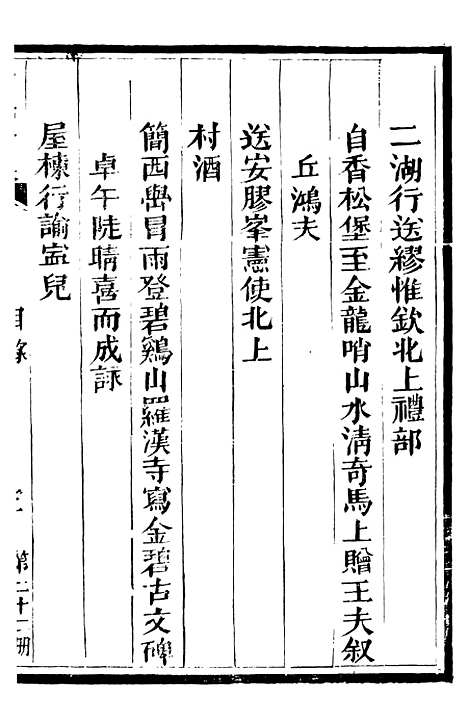 二湖行送繆惟欽北上禮部
自香松堡至金龍哨山水清奇馬上贈王夫叙
丘鴻夫
送安膠峯憲使北上
村酒
簡西嶨冒雨登碧鷄山羅漢寺寫金碧古文碑
卓午陡晴喜而成詠
屋棟行諭寍兒
目錄
第二十一册